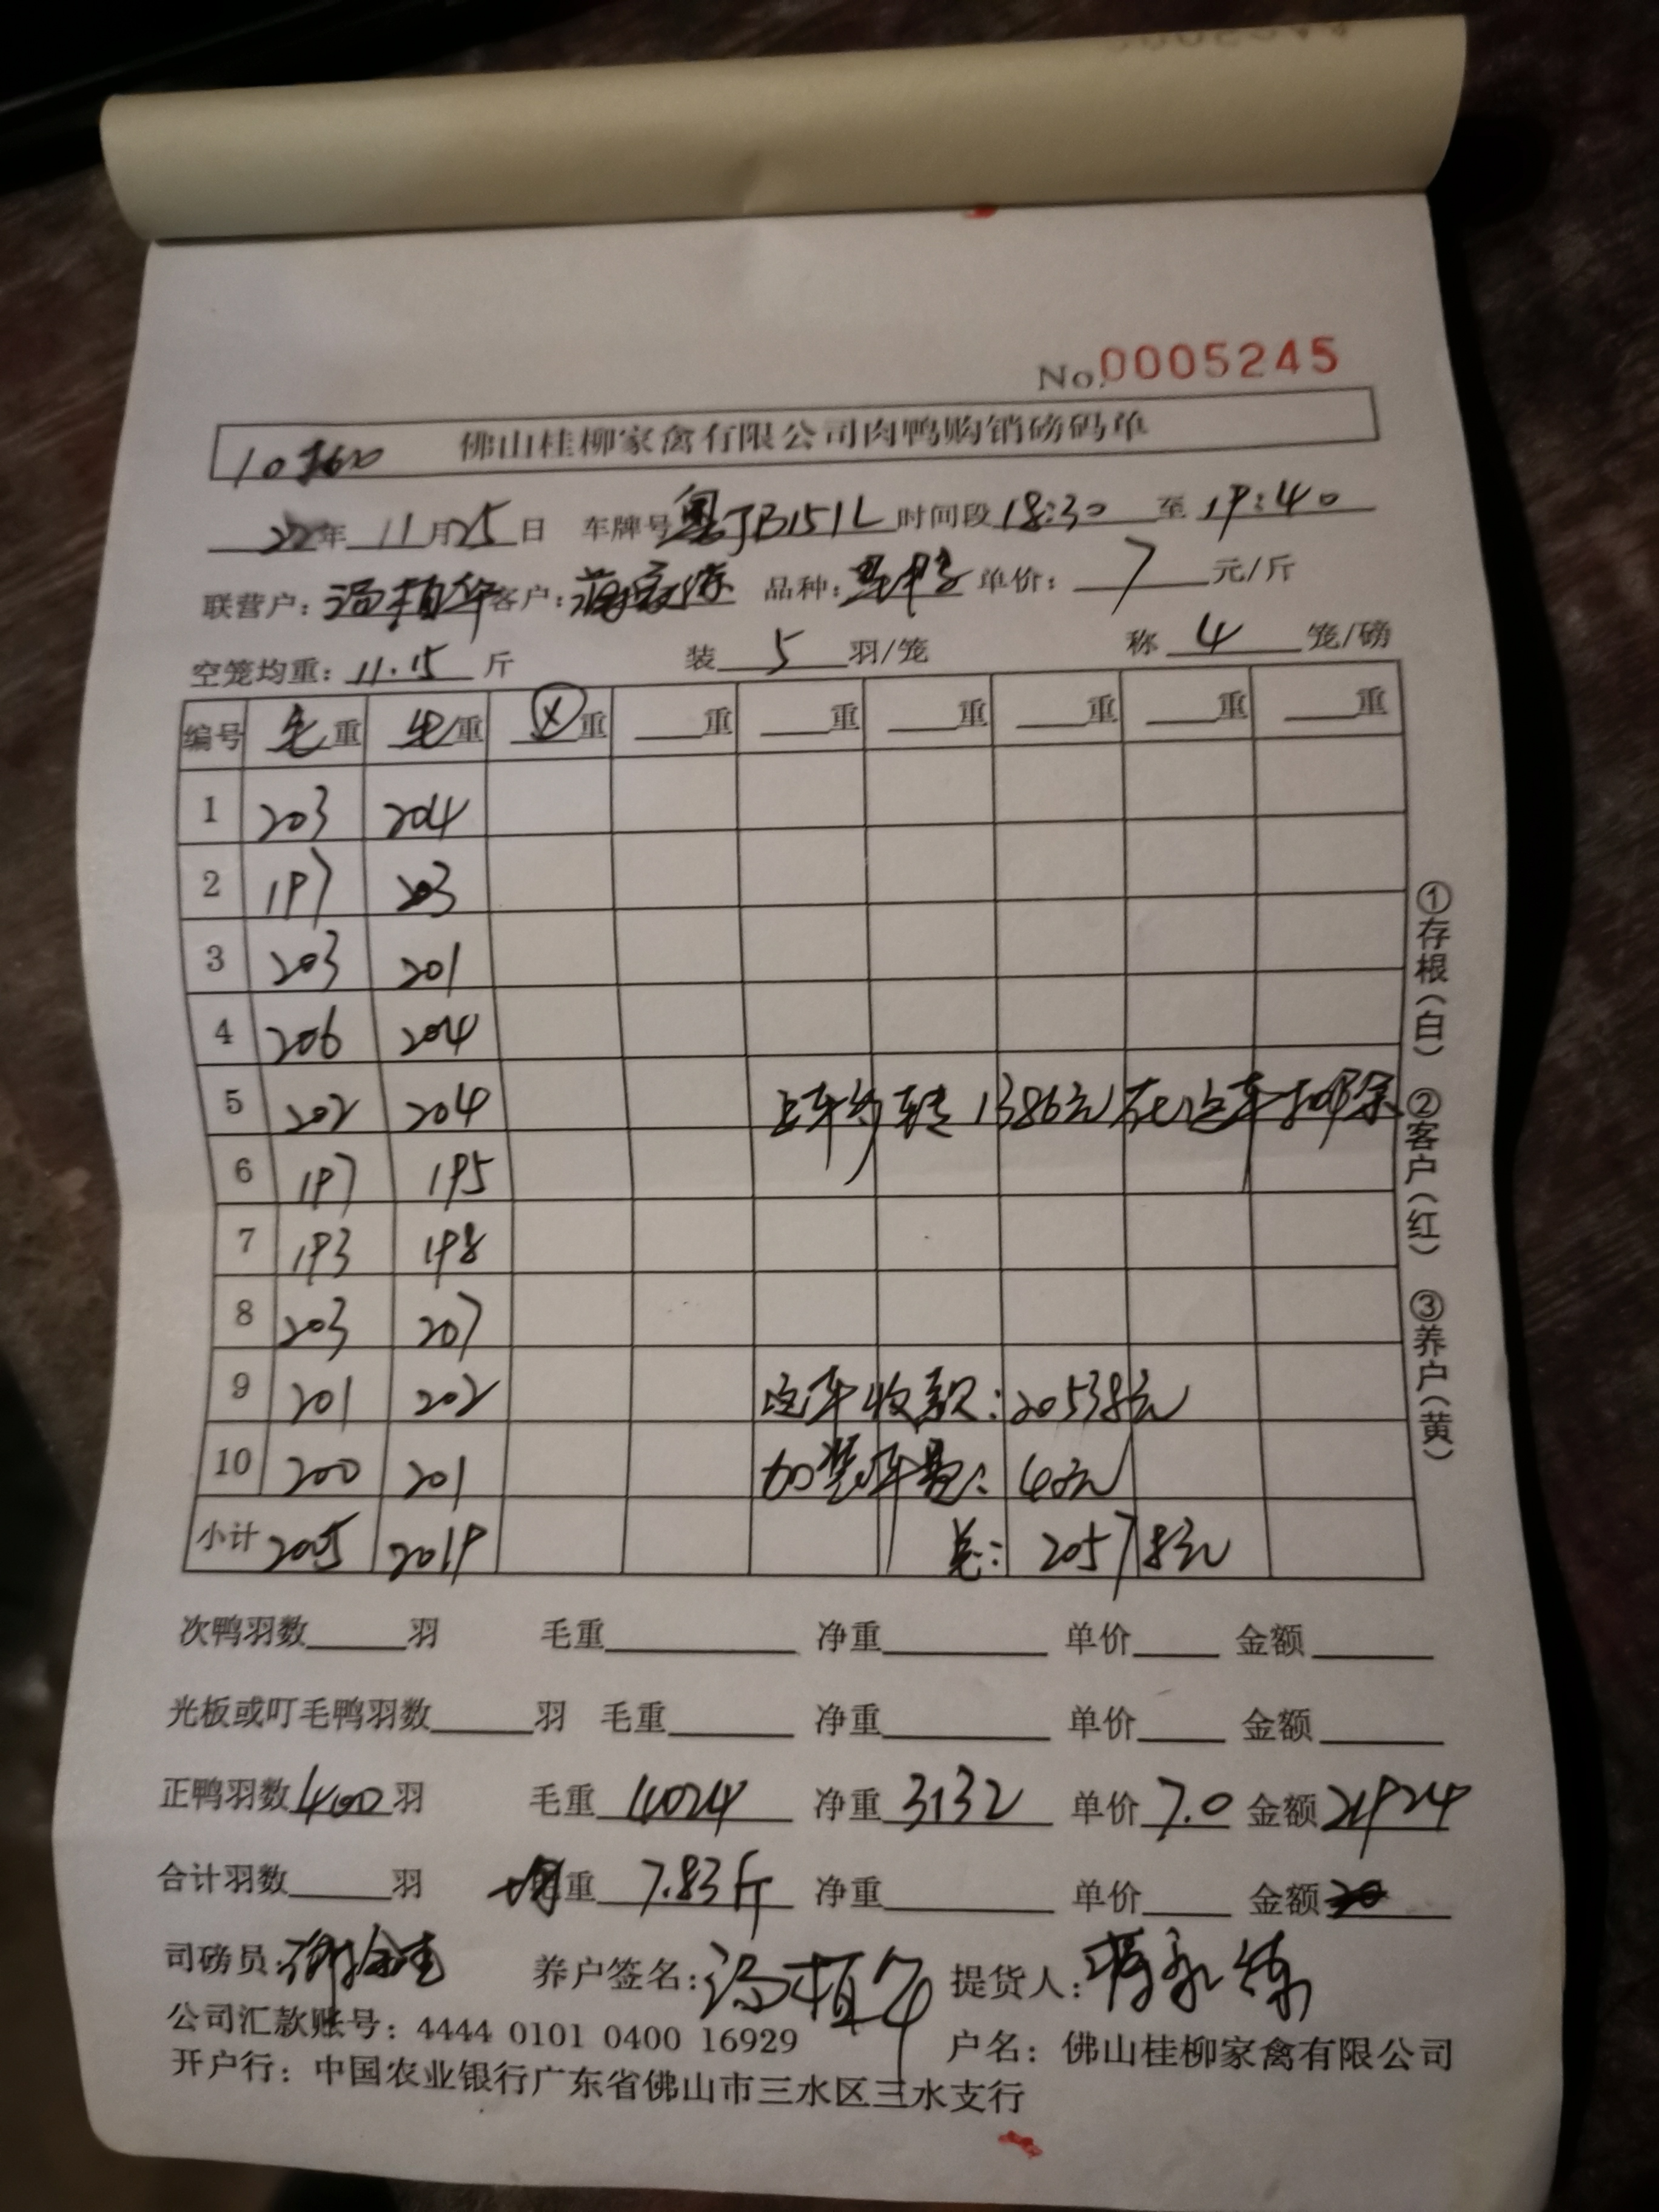 No.0005245
佛山桂柳家禽有限公司肉鸭购销磅码单
22年 11月25日 车牌号粤JB151L 时间段18:30 至 19:40
联营户：汤植华 客户： 品种： 单价：7元/斤
空笼均重：11.15斤 装5羽/笼 称4笼/磅
编号 毛重 毛重 ⓧ重 重 重 重 重 重 重
1 203 204
2 197 203
3 203 201
4 206 204
5 202 204 上车多转1386元在这车扣除
6 197 195
7 193 198
8 203 207
9 201 202 这车收款：20538元
10 200 201 加装车费：40元
小计 2005 2019 总：20578元
次鸭羽数 羽 毛重 净重 单价 金额
光板或叮毛鸭羽数 羽 毛重 净重 单价 金额
正鸭羽数400羽 毛重4024 净重3132 单价7.0 金额21924
合计羽数 羽 均重7.83斤 净重 单价 金额
司磅员： 养户签名：汤植华 提货人：蒋永练
公司汇款账号：4444 0101 0400 16929 户名：佛山桂柳家禽有限公司
开户行：中国农业银行广东省佛山市三水区三水支行
①存根（白） ②客户（红） ③养户（黄）